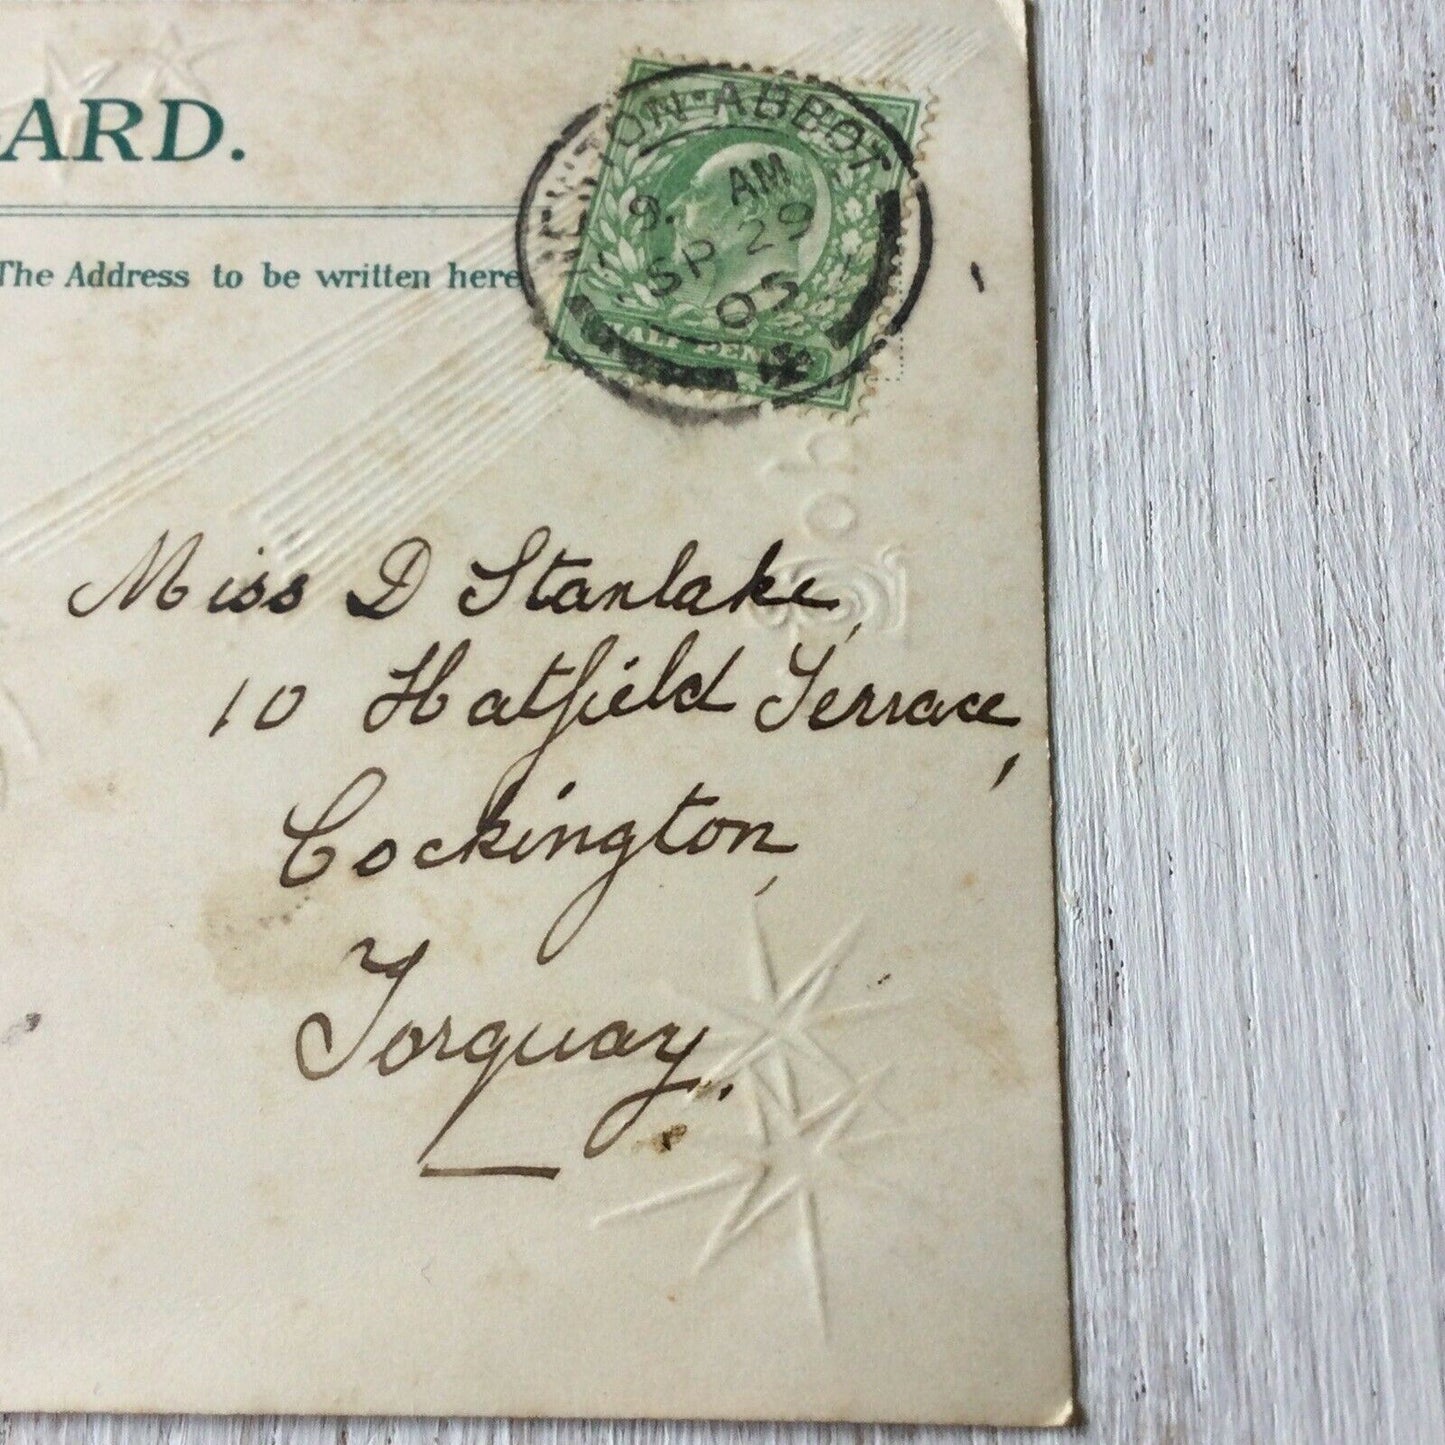 ARD.
The Address to be written here
NEWTON·ABBOT
9. AM
SP 29
05
HALF PENNY
Miss D Stanlake,
10 Hatfield Terrace,
Cockington,
Torquay.